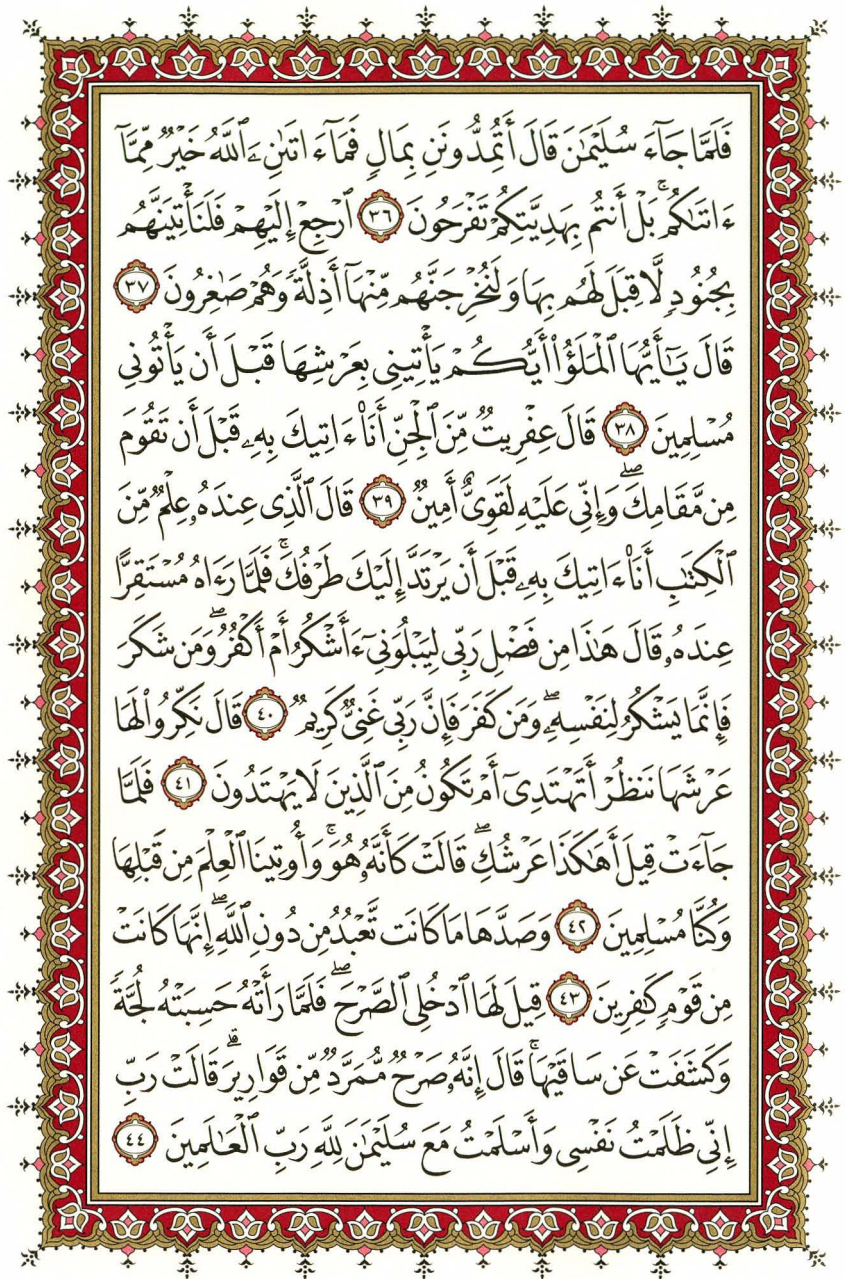 فَلَمَّا جَآءَ سُلَيْمَٰنَ قَالَ أَتُمِدُّونَنِ بِمَالٍ فَمَآ ءَاتَىٰنِۦَ ٱللَّهُ خَيْرٌ مِّمَّآ
ءَاتَىٰكُمۚ بَلْ أَنتُم بِهَدِيَّتِكُمْ تَفْرَحُونَ ٣٦ ٱرْجِعْ إِلَيْهِمْ فَلَنَأْتِيَنَّهُم
بِجُنُودٍ لَّا قِبَلَ لَهُم بِهَا وَلَنُخْرِجَنَّهُم مِّنْهَآ أَذِلَّةً وَهُمْ صَٰغِرُونَ ٣٧
قَالَ يَٰٓأَيُّهَا ٱلْمَلَؤُا۟ أَيُّكُمْ يَأْتِينِى بِعَرْشِهَا قَبْلَ أَن يَأْتُونِى
مُسْلِمِينَ ٣٨ قَالَ عِفْرِيتٌ مِّنَ ٱلْجِنِّ أَنَا۠ ءَاتِيكَ بِهِۦ قَبْلَ أَن تَقُومَ
مِن مَّقَامِكَۖ وَإِنِّى عَلَيْهِ لَقَوِىٌّ أَمِينٌ ٣٩ قَالَ ٱلَّذِى عِندَهُۥ عِلْمٌ مِّنَ
ٱلْكِتَٰبِ أَنَا۠ ءَاتِيكَ بِهِۦ قَبْلَ أَن يَرْتَدَّ إِلَيْكَ طَرْفُكَۚ فَلَمَّا رَءَاهُ مُسْتَقِرًّا
عِندَهُۥ قَالَ هَٰذَا مِن فَضْلِ رَبِّى لِيَبْلُوَنِىٓ ءَأَشْكُرُ أَمْ أَكْفُرُۖ وَمَن شَكَرَ
فَإِنَّمَا يَشْكُرُ لِنَفْسِهِۦۖ وَمَن كَفَرَ فَإِنَّ رَبِّى غَنِىٌّ كَرِيمٌ ٤٠ قَالَ نَكِّرُوا۟ لَهَا
عَرْشَهَا نَنظُرْ أَتَهْتَدِىٓ أَمْ تَكُونُ مِنَ ٱلَّذِينَ لَا يَهْتَدُونَ ٤١ فَلَمَّا
جَآءَتْ قِيلَ أَهَٰكَذَا عَرْشُكِۖ قَالَتْ كَأَنَّهُۥ هُوَۚ وَأُوتِينَا ٱلْعِلْمَ مِن قَبْلِهَا
وَكُنَّا مُسْلِمِينَ ٤٢ وَصَدَّهَا مَا كَانَت تَّعْبُدُ مِن دُونِ ٱللَّهِۖ إِنَّهَا كَانَتْ
مِن قَوْمٍ كَٰفِرِينَ ٤٣ قِيلَ لَهَا ٱدْخُلِى ٱلصَّرْحَۖ فَلَمَّا رَأَتْهُ حَسِبَتْهُ لُجَّةً
وَكَشَفَتْ عَن سَاقَيْهَاۚ قَالَ إِنَّهُۥ صَرْحٌ مُّمَرَّدٌ مِّن قَوَارِيرَۗ قَالَتْ رَبِّ
إِنِّى ظَلَمْتُ نَفْسِى وَأَسْلَمْتُ مَعَ سُلَيْمَٰنَ لِلَّهِ رَبِّ ٱلْعَٰلَمِينَ ٤٤